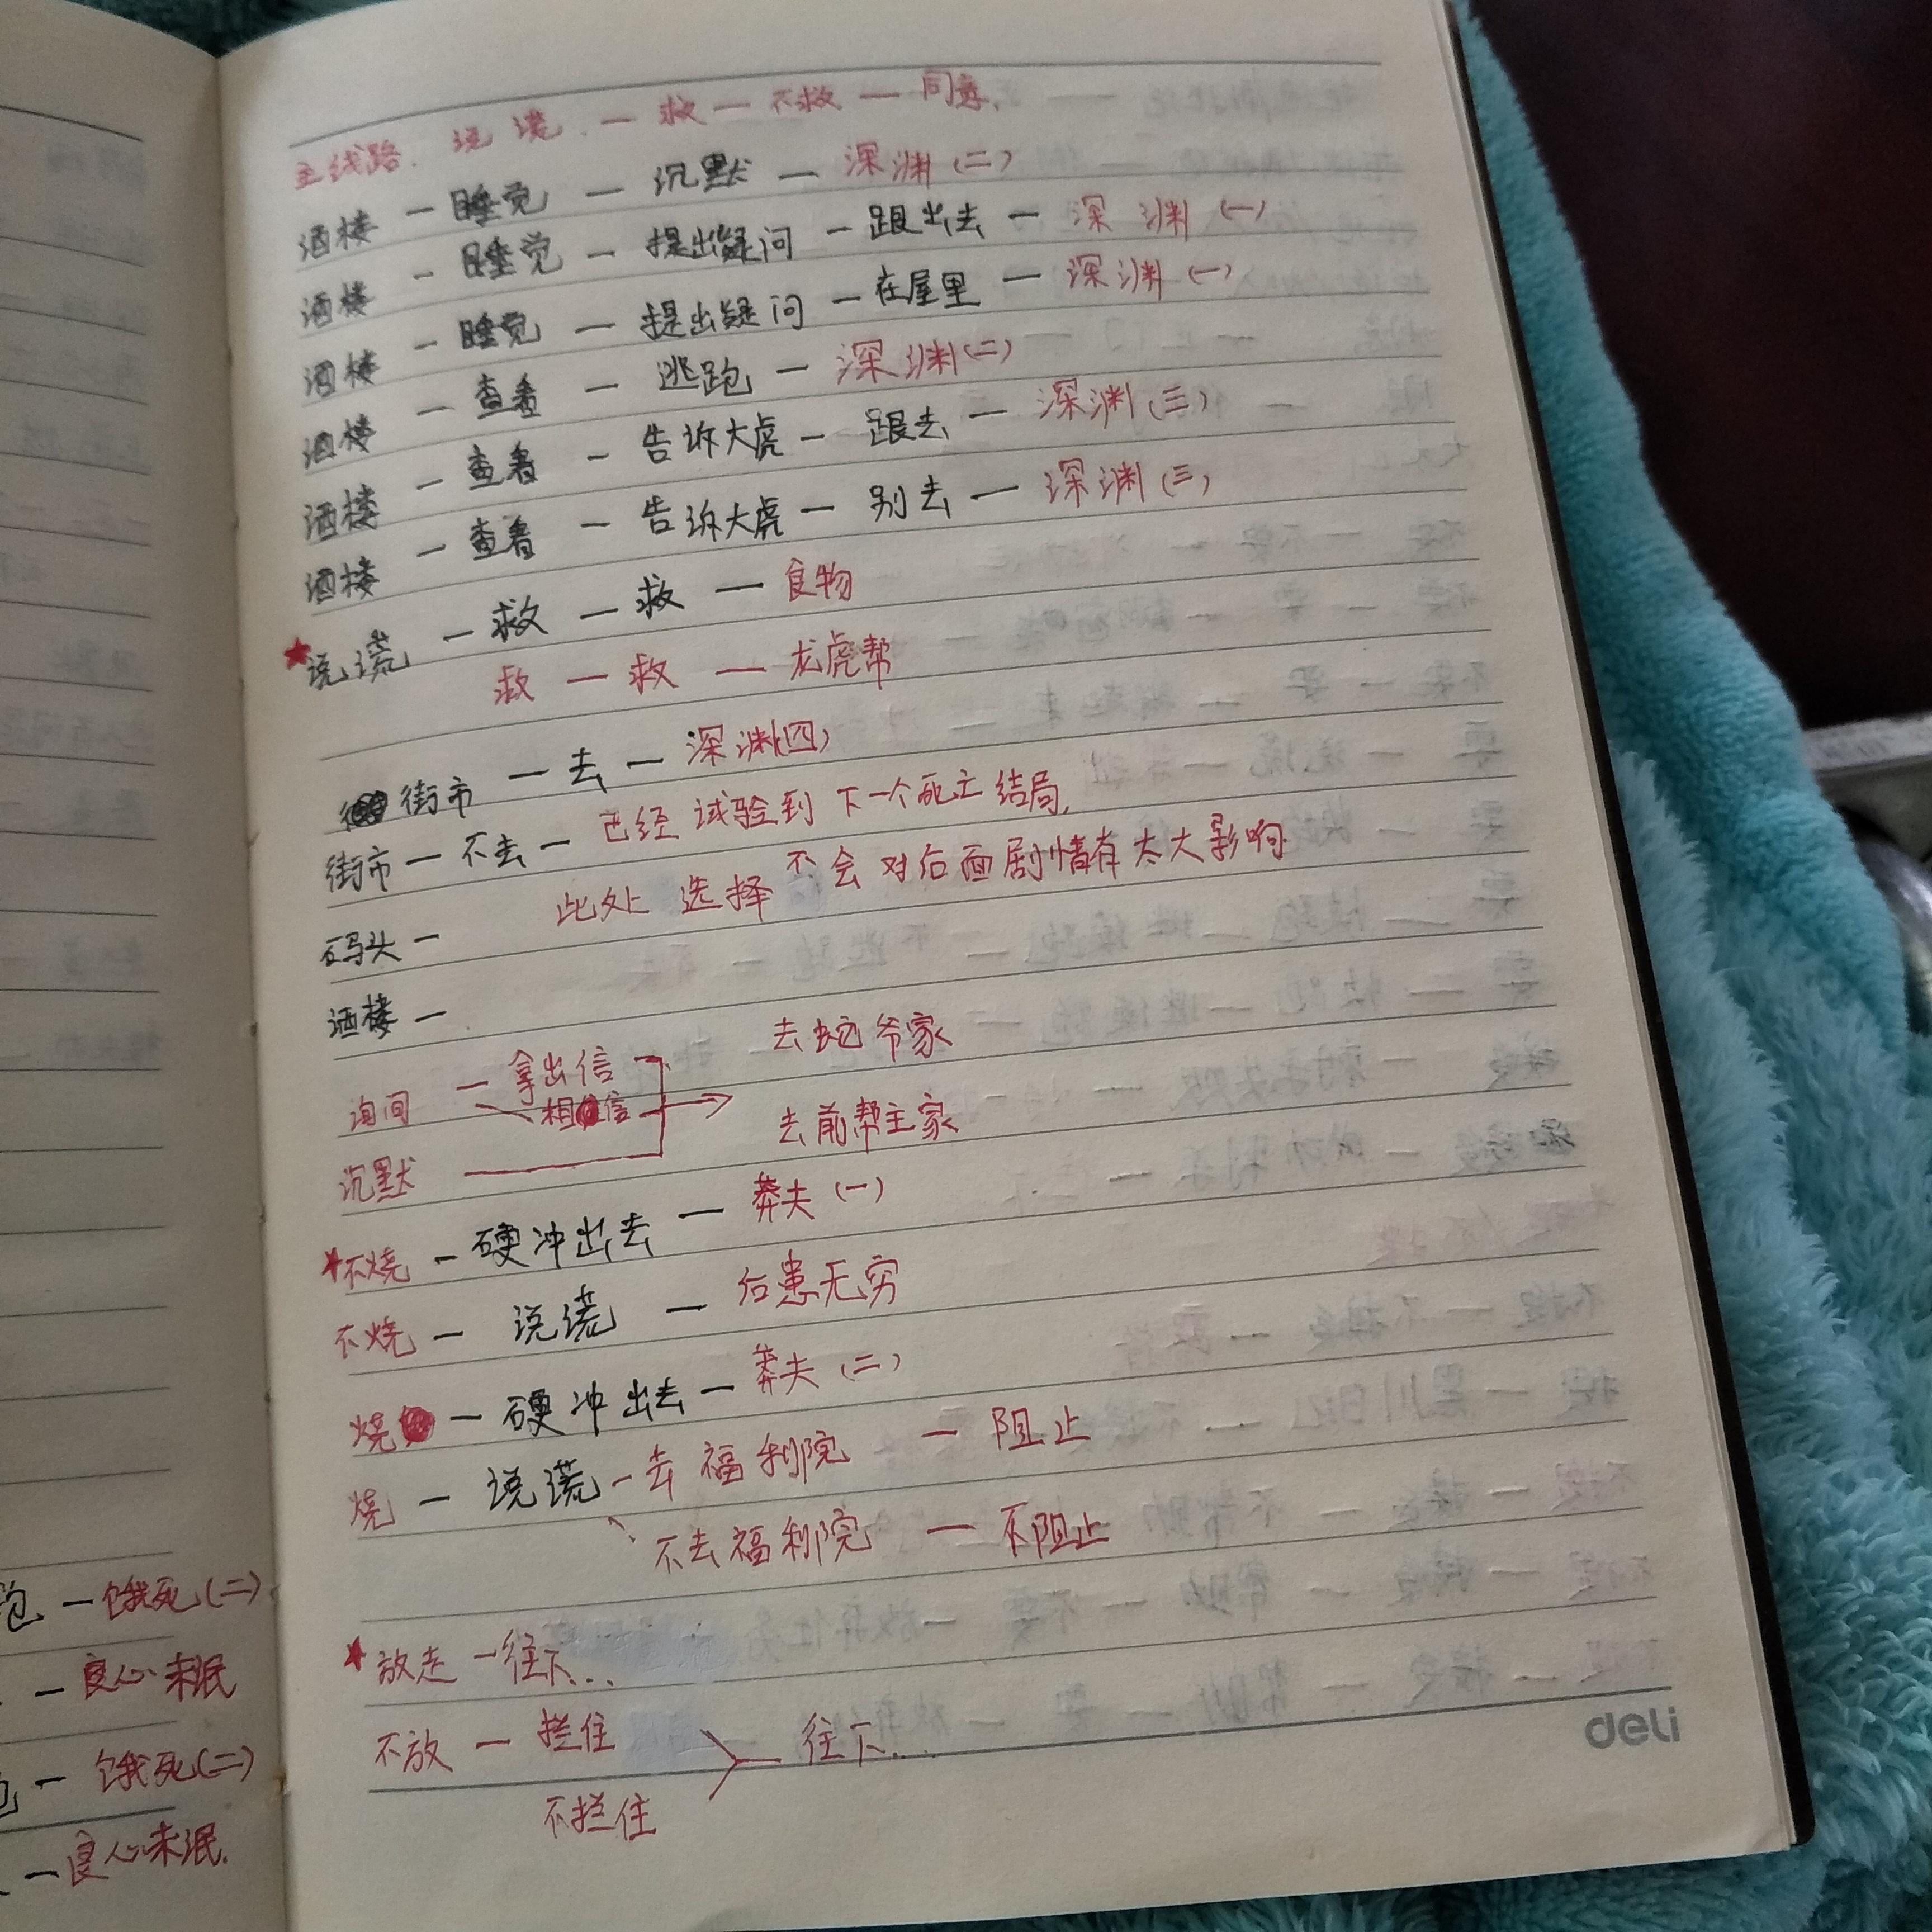 主线路. 说谎. — 救 — 不救 — 同意.
酒楼 — 睡觉 — 沉默 — 深渊(二)
酒楼 — 睡觉 — 提出疑问 — 跟出去 — 深渊(一)
酒楼 — 睡觉 — 提出疑问 — 在屋里 — 深渊(一)
酒楼 — 查看 — 逃跑 — 深渊(二)
酒楼 — 查看 — 告诉大虎 — 跟去 — 深渊(三)
酒楼 — 查看 — 告诉大虎 — 别去 — 深渊(三)
★说谎 — 救 — 救 — 食物
救 — 救 — 龙虎帮
街市 — 去 — 深渊(四)
街市 — 不去 — 已经试验到下一个死亡结局.
此处选择不会对后面剧情有太大影响
码头 —
酒楼 —
去蛇爷家
询问 — 拿出信
相信
去前帮主家
沉默
★不烧 — 硬冲出去 — 莽夫(一)
不烧 — 说谎 — 后患无穷
烧 — 硬冲出去 — 莽夫(二)
烧 — 说谎 — 去福利院 — 阻止
不去福利院 — 不阻止
★放走 — 往下...
不放 — 拦住 往下...
不拦住
deli
— 饿死(二)
— 良心未泯
— 饿死(二)
— 良心未泯.